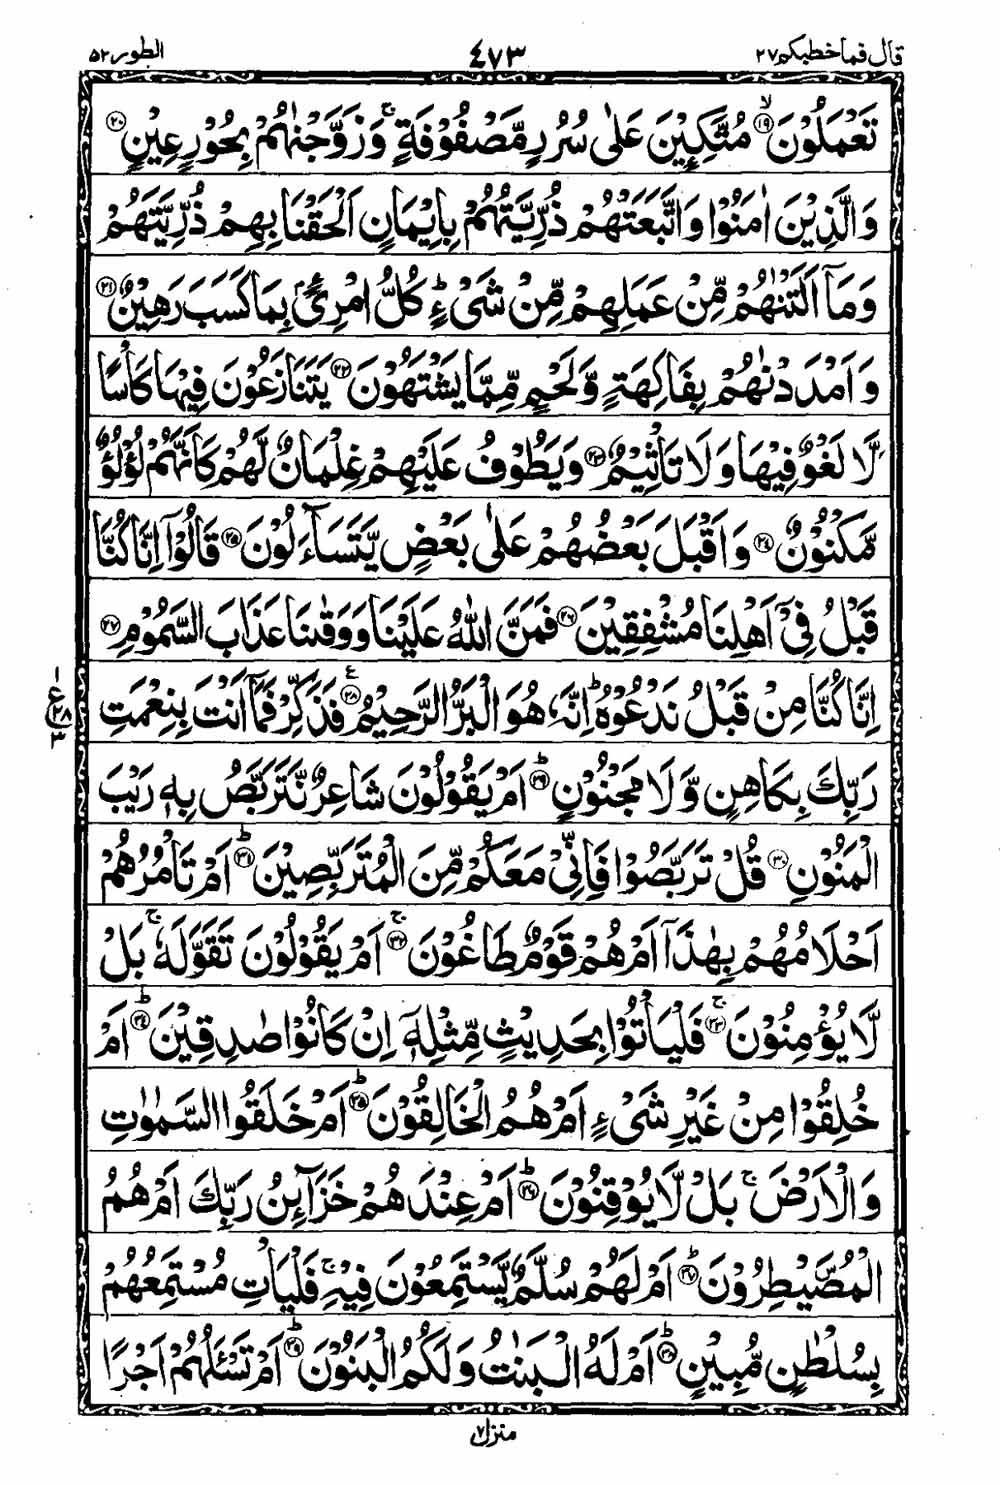 قال فماخطبكم٢٧ ٤٧٣ الطور٥٢
تَعْمَلُوْنَ ۙ﴿۱۹﴾ مُتَّكِـِٕيْنَ عَلٰى سُرُرٍ مَّصْفُوْفَةٍ ۚ وَ زَوَّجْنٰهُمْ بِحُوْرٍ عِيْنٍ ﴿۲۰﴾
وَ الَّذِيْنَ اٰمَنُوْا وَ اتَّبَعَتْهُمْ ذُرِّيَّتُهُمْ بِاِيْمَانٍ اَلْحَقْنَا بِهِمْ ذُرِّيَّتَهُمْ
وَ مَاۤ اَلَتْنٰهُمْ مِّنْ عَمَلِهِمْ مِّنْ شَيْءٍ ؕ كُلُّ امْرِئٍۭ بِمَا كَسَبَ رَهِيْنٌ ﴿۲۱﴾
وَ اَمْدَدْنٰهُمْ بِفَاكِهَةٍ وَّ لَحْمٍ مِّمَّا يَشْتَهُوْنَ ﴿۲۲﴾ يَتَنَازَعُوْنَ فِيْهَا كَاْسًا
لَّا لَغْوٌ فِيْهَا وَ لَا تَاْثِيْمٌ ﴿۲۳﴾ وَ يَطُوْفُ عَلَيْهِمْ غِلْمَانٌ لَّهُمْ كَاَنَّهُمْ لُؤْلُؤٌ
مَّكْنُوْنٌ ﴿۲۴﴾ وَ اَقْبَلَ بَعْضُهُمْ عَلٰى بَعْضٍ يَّتَسَآءَلُوْنَ ﴿۲۵﴾ قَالُوْۤا اِنَّا كُنَّا
قَبْلُ فِيْۤ اَهْلِنَا مُشْفِقِيْنَ ﴿۲۶﴾ فَمَنَّ اللّٰهُ عَلَيْنَا وَ وَقٰىنَا عَذَابَ السَّمُوْمِ ﴿۲۷﴾
اِنَّا كُنَّا مِنْ قَبْلُ نَدْعُوْهُ ؕ اِنَّهٗ هُوَ الْبَرُّ الرَّحِيْمُ ﴿۲۸﴾ ع فَذَكِّرْ فَمَاۤ اَنْتَ بِنِعْمَتِ
١ ع ٢٨ ٣
رَبِّكَ بِكَاهِنٍ وَّ لَا مَجْنُوْنٍ ؕ﴿۲۹﴾ اَمْ يَقُوْلُوْنَ شَاعِرٌ نَّتَرَبَّصُ بِهٖ رَيْبَ
الْمَنُوْنِ ﴿۳۰﴾ قُلْ تَرَبَّصُوْا فَاِنِّيْ مَعَكُمْ مِّنَ الْمُتَرَبِّصِيْنَ ؕ﴿۳۱﴾ اَمْ تَاْمُرُهُمْ
اَحْلَامُهُمْ بِهٰذَاۤ اَمْ هُمْ قَوْمٌ طَاغُوْنَ ۚ﴿۳۲﴾ اَمْ يَقُوْلُوْنَ تَقَوَّلَهٗ ۚ بَلْ
لَّا يُؤْمِنُوْنَ ۚ﴿۳۳﴾ فَلْيَاْتُوْا بِحَدِيْثٍ مِّثْلِهٖۤ اِنْ كَانُوْا صٰدِقِيْنَ ؕ﴿۳۴﴾ اَمْ
خُلِقُوْا مِنْ غَيْرِ شَيْءٍ اَمْ هُمُ الْخَالِقُوْنَ ؕ﴿۳۵﴾ اَمْ خَلَقُوا السَّمٰوٰتِ
وَ الْاَرْضَ ۚ بَلْ لَّا يُوْقِنُوْنَ ؕ﴿۳۶﴾ اَمْ عِنْدَهُمْ خَزَآئِنُ رَبِّكَ اَمْ هُمُ
الْمُصَۜيْطِرُوْنَ ؕ﴿۳۷﴾ اَمْ لَهُمْ سُلَّمٌ يَّسْتَمِعُوْنَ فِيْهِ ۚ فَلْيَاْتِ مُسْتَمِعُهُمْ
بِسُلْطٰنٍ مُّبِيْنٍ ؕ﴿۳۸﴾ اَمْ لَهُ الْبَنٰتُ وَ لَكُمُ الْبَنُوْنَ ؕ﴿۳۹﴾ اَمْ تَسْـَٔلُهُمْ اَجْرًا
منزل٧